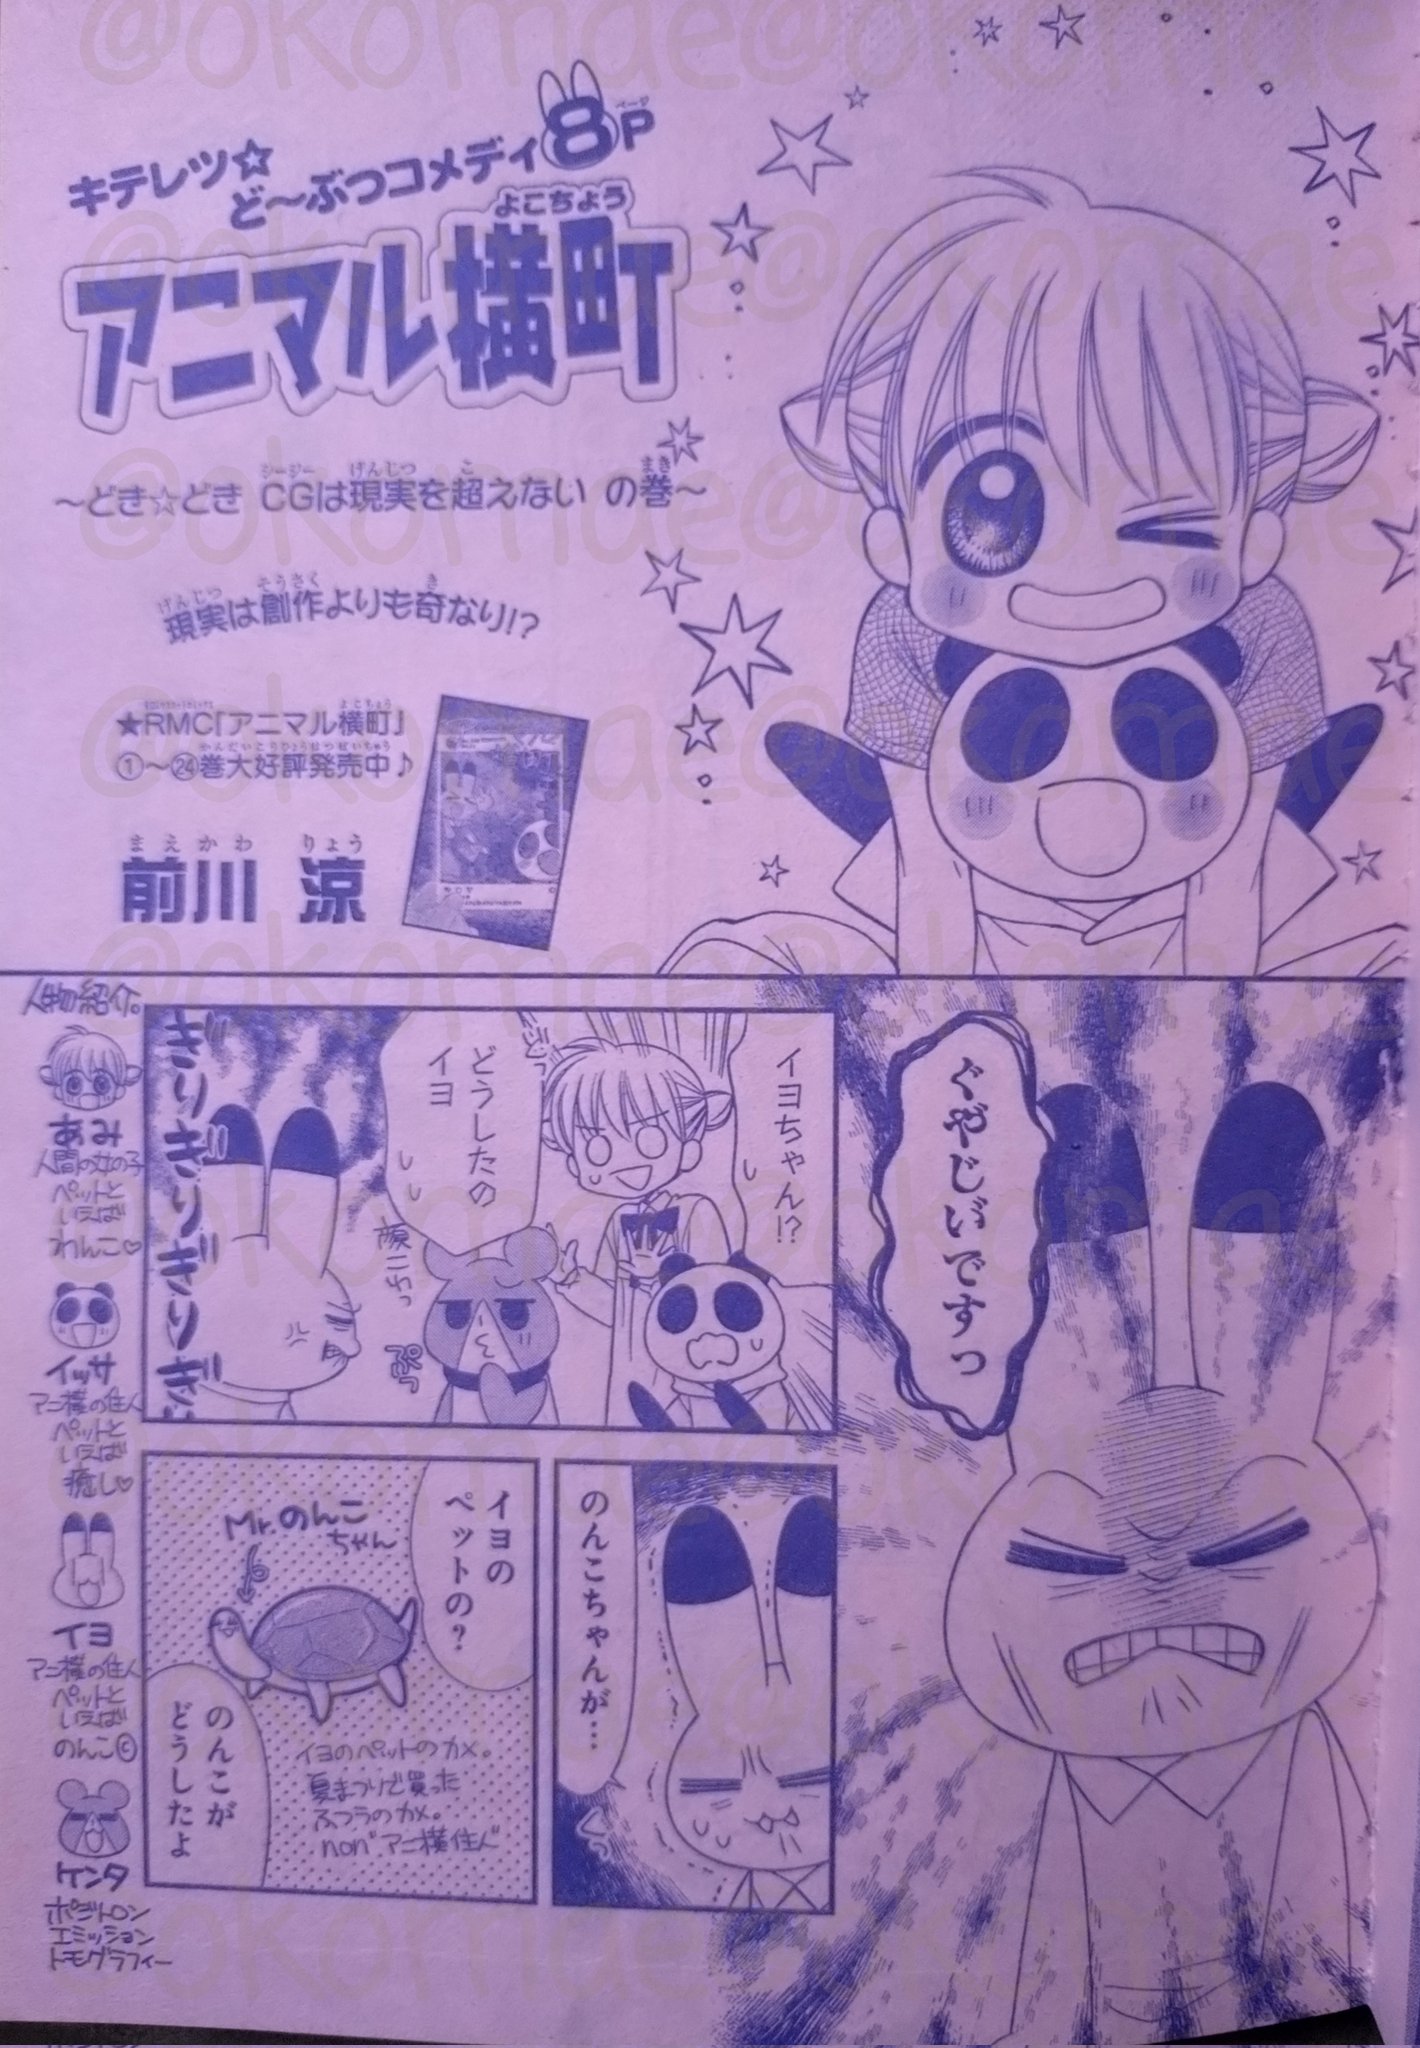 キテレツ☆
ど〜ぶつコメディ8P
アニマル横町
よこちょう
〜どき☆どき CGは現実を超えない の巻〜
現実は創作よりも奇なり!?
★RMC「アニマル横町」
①〜㉔巻大好評発売中♪
まえかわ りょう
前川 涼
ぐやじいですっ
イヨちゃん!?
どうしたの
イヨ
顔こわっ
ぷっ
ぎりぎりぎりぎ
のんこちゃんが…
イヨの
ペットの?
Mr.のんこ
ちゃん
イヨのペットのカメ。
夏まつりで買った
ふつうのカメ。
non アニ横住人
のんこが
どうしたよ
人物紹介。
あみ
人間の女の子
ペットと
いえば
わんこ♡
イッサ
アニ横の住人
ペットと
いえば
癒し♡
イヨ
アニ横の住人
ペットと
いえば
のんこ
ケンタ
ポジトロン
エミッション
トモグラフィー
@okomae@okomae